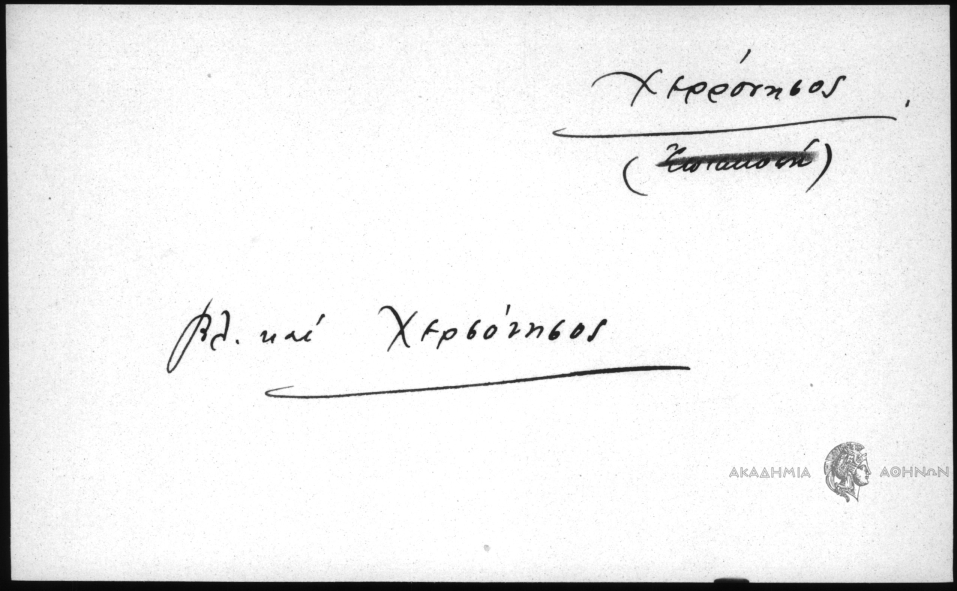 Χερρόνησος
βλ. καί Χερσόνησος
ΑΚΑΔΗΜΙΑ ΑΘΗΝΩΝ